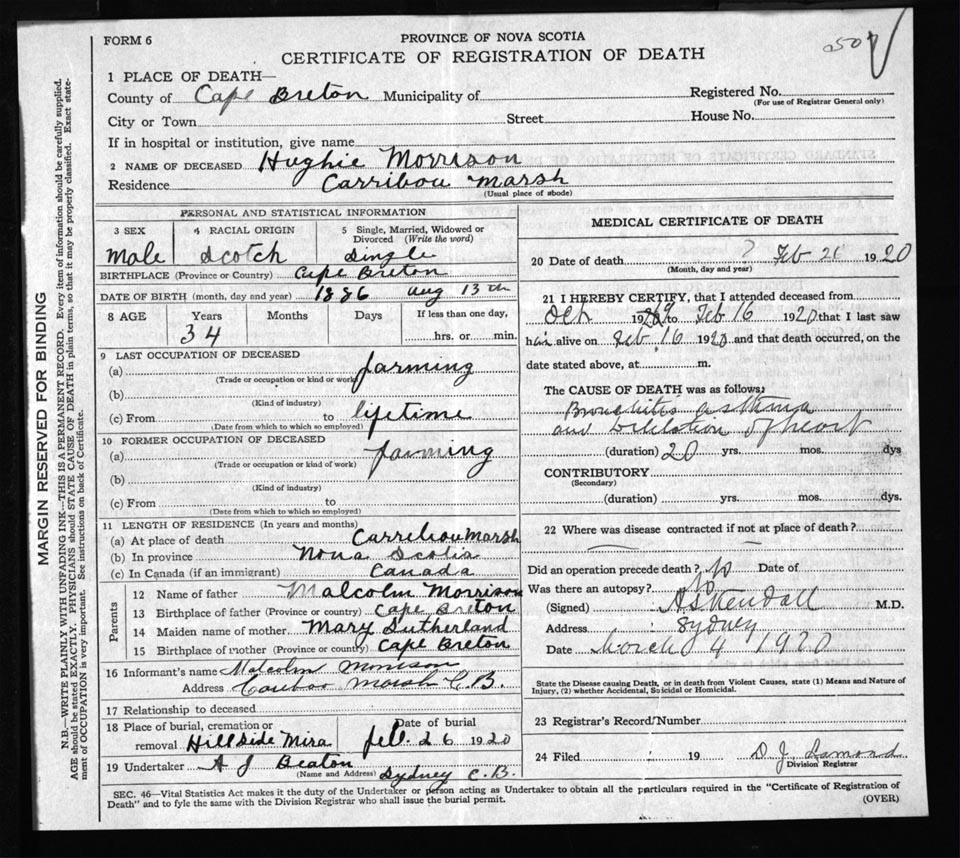 FORM 6
PROVINCE OF NOVA SCOTIA
CERTIFICATE OF REGISTRATION OF DEATH
1 PLACE OF DEATH—
County of Cape Breton Municipality of
Registered No.
(For use of Registrar General only)
City or Town Street House No.
If in hospital or institution, give name
2 NAME OF DECEASED Hughie Morrison
Residence Carribou Marsh
(Usual place of abode)
PERSONAL AND STATISTICAL INFORMATION
3 SEX 4 RACIAL ORIGIN 5 Single, Married, Widowed or Divorced (Write the word)
Male Scotch Single
BIRTHPLACE (Province or Country) Cape Breton
DATE OF BIRTH (month, day and year) 1886 Aug 13th
8 AGE Years Months Days If less than one day,
34 hrs. or min.
9 LAST OCCUPATION OF DECEASED
(a) farming
(Trade or occupation or kind or work)
(b)
(Kind of industry)
(c) From to lifetime
(Date from which to which so employed)
10 FORMER OCCUPATION OF DECEASED
(a) farming
(Trade or occupation or kind of work)
(b)
(Kind of industry)
(c) From to
(Date from which to which so employed)
11 LENGTH OF RESIDENCE (In years and months)
(a) At place of death Carribou Marsh
(b) In province Nova Scotia
(c) In Canada (if an immigrant) Canada
Parents
12 Name of father Malcolm Morrison
13 Birthplace of father (Province or country) Cape Breton
14 Maiden name of mother Mary Sutherland
15 Birthplace of mother (Province or country) Cape Breton
16 Informant's name Malcolm Morrison
Address Marsh C.B.
17 Relationship to deceased
18 Place of burial, cremation or removal Hillside Mira
Date of burial Feb. 26 1920
19 Undertaker A J Beaton
(Name and Address) Sydney C.B.
MEDICAL CERTIFICATE OF DEATH
20 Date of death ? Feb 1920
(Month, day and year)
21 I HEREBY CERTIFY, that I attended deceased from
Oct 19 to Feb 16 1920 that I last saw
him alive on Feb. 16 1920 and that death occurred, on the
date stated above, at m.
The CAUSE OF DEATH was as follows:
Bronchitis asthma
and Dilatation of heart
(duration) 20 yrs. mos. dys
CONTRIBUTORY
(Secondary)
(duration) yrs. mos. dys.
22 Where was disease contracted if not at place of death?
Did an operation precede death? No Date of
Was there an autopsy? No
(Signed) A S Kendall M.D.
Address Sydney
Date March 4 1920
State the Disease causing Death, or in death from Violent Causes, state (1) Means and Nature of
Injury, (2) whether Accidental, Suicidal or Homicidal.
23 Registrar's Record Number
24 Filed 19 D. J. Lamond
Division Registrar
SEC. 46—Vital Statistics Act makes it the duty of the Undertaker or person acting as Undertaker to obtain all the particulars required in the "Certificate of Registration of
Death" and to fyle the same with the Division Registrar who shall issue the burial permit.
(OVER)
MARGIN RESERVED FOR BINDING
N.B.—WRITE PLAINLY WITH UNFADING INK—THIS IS A PERMANENT RECORD. Every item of information should be carefully supplied.
AGE should be stated EXACTLY. PHYSICIANS should STATE CAUSE OF DEATH in plain terms, so that it may be properly classified. Exact statement of OCCUPATION is very important. See instructions on back of Certificate.